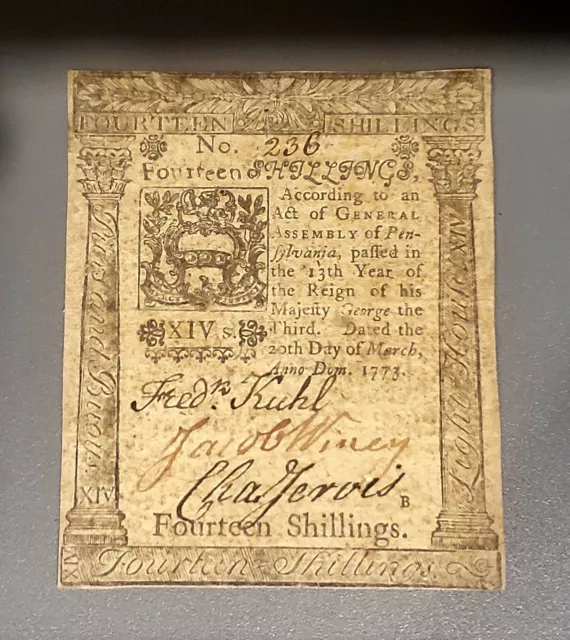 FOURTEEN SHILLINGS
No. 236
Fourteen SHILLINGS,
According to an
Act of GENERAL
ASSEMBLY of Pen-
ſylvania, paſſed in
the 13th Year of
the Reign of his
Majeſty George the
Third. Dated the
20th Day of March,
Anno Dom. 1773.
XIV s.
Fredn. Kuhl
Jacob Winey
Cha Jervis
B
Fourteen Shillings.
XIV
Light Houſe
XIV
XIV
Fourteen Shillings.